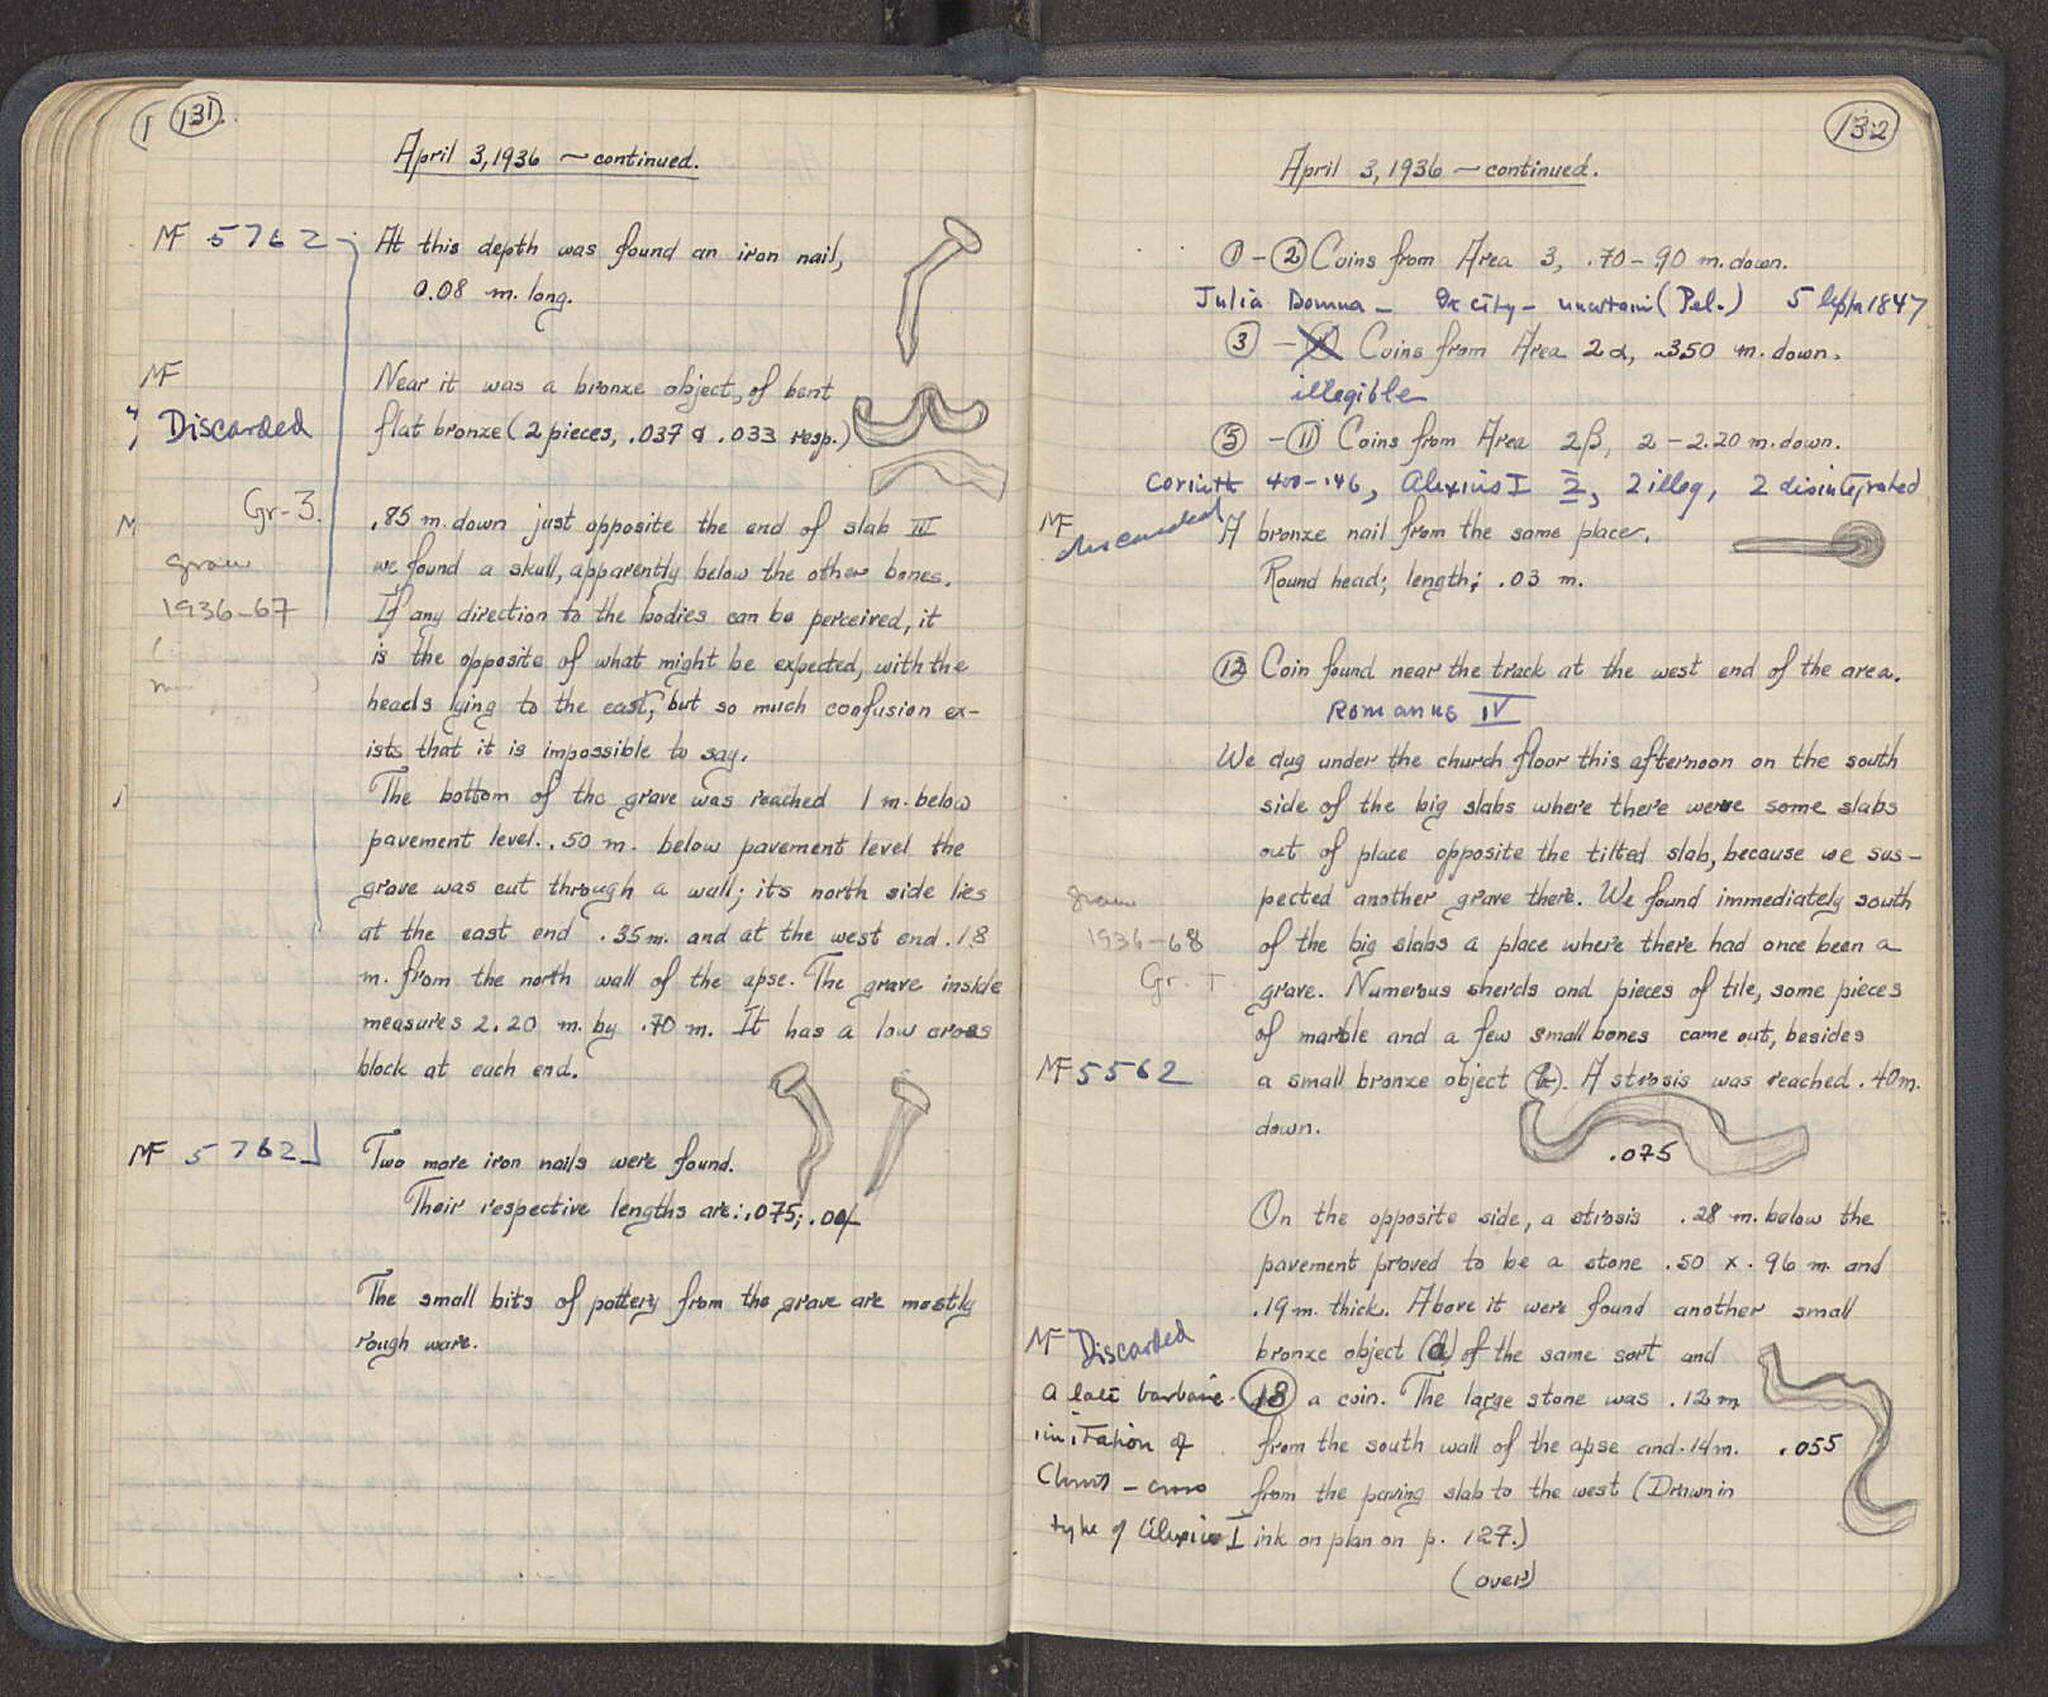 131.
April 3, 1936 — continued.
MF 5762
At this depth was found an iron nail,
0.08 m. long.
MF
Discarded
Near it was a bronze object, of bent
flat bronze (2 pieces, .037 & .033 resp.)
Gr-3.
grave
1936-67
.85 m. down just opposite the end of slab III
we found a skull, apparently below the other bones.
If any direction to the bodies can be perceived, it
is the opposite of what might be expected, with the
heads lying to the east, but so much confusion ex-
ists that it is impossible to say.
The bottom of the grave was reached 1 m. below
pavement level. .50 m. below pavement level the
grave was cut through a wall; its north side lies
at the east end .35 m. and at the west end .18
m. from the north wall of the apse. The grave inside
measures 2.20 m. by .70 m. It has a low cross
block at each end.
MF 5762
Two more iron nails were found.
Their respective lengths are: .075;
The small bits of pottery from the grave are mostly
rough ware.
132
April 3, 1936 — continued.
① - ② Coins from Area 3, .70 - .90 m. down.
Julia Domna - city - uncertain (Pel.) 5 lepta 1847
③ - Coins from Area 2α, 3.50 m. down.
illegible
⑤ - ⑪ Coins from Area 2β, 2 - 2.20 m. down.
Corinth 400-146, Alexius I 2, 2 illeg, 2 disintegrated
MF
discarded
A bronze nail from the same place.
Round head; length; .03 m.
⑫ Coin found near the track at the west end of the area.
Romanus IV
We dug under the church floor this afternoon on the south
side of the big slabs where there were some slabs
out of place opposite the tilted slab, because we sus-
pected another grave there. We found immediately south
grave
1936-68
Gr.
of the big slabs a place where there had once been a
grave. Numerous sherds and pieces of tile, some pieces
of marble and a few small bones came out, besides
MF 5562
a small bronze object. A strosis was reached .40 m.
down.
.075
On the opposite side, a strosis .28 m. below the
pavement proved to be a stone .50 x .96 m. and
.19 m. thick. Above it were found another small
MF Discarded
bronze object (d) of the same sort and
⑱ a coin. The large stone was .12 m
from the south wall of the apse and .14 m.
.055
from the paving slab to the west (Drawn in
ink on plan on p. 127.)
a late barbaric
imitation of
Christ - cross
type of Alexius I
(over)